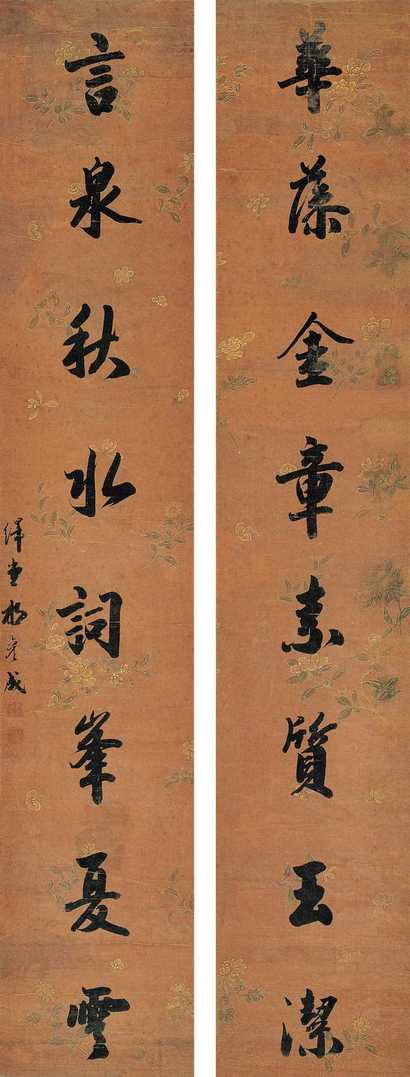 華藻金章素質玉潔
言泉秋水詞峯夏雲
繹堂楊彥成